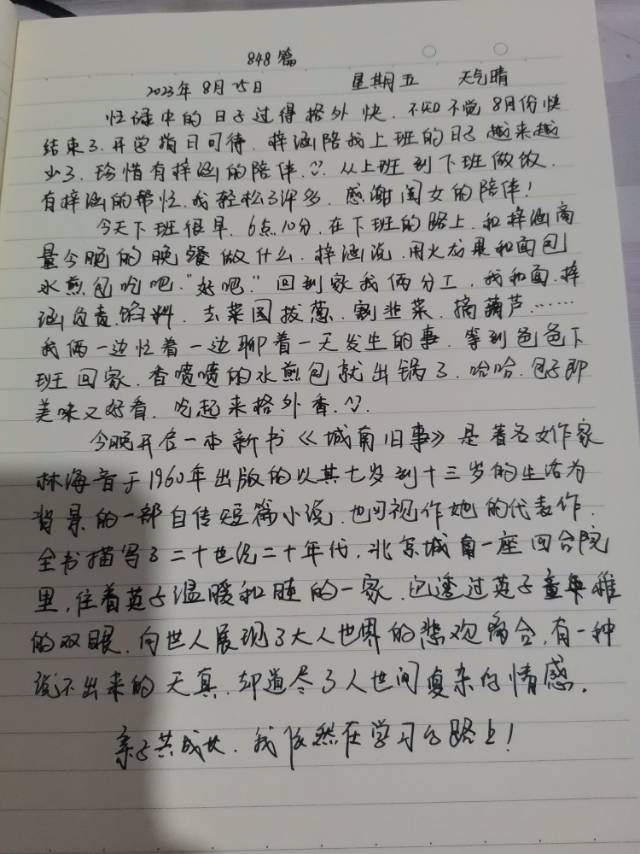 848篇
2023年8月25日 星期五 天气晴
忙碌中的日子过得格外快.不知不觉8月份快
结束了.开学指日可待.梓涵陪我上班的日子越来越
少了.珍惜有梓涵的陪伴.从上班到下班做饭.
有梓涵的帮忙.我轻松了许多.感谢闺女的陪伴!
今天下班很早.6点10分.在下班的路上.和梓涵商
量今晚的晚餐做什么.梓涵说.用火龙果和面包
水煎包吃吧."好吧."回到家我俩分工,我和面.梓
涵负责馅料.去菜园拔葱.割韭菜.摘葫芦……
我俩一边忙着一边聊着一天发生的事.等到爸爸下
班回家.香喷喷的水煎包就出锅了.哈哈.包子即
美味又好看.吃起来格外香.
今晚开启一本新书《城南旧事》是著名女作家
林海音于1960年出版的以其七岁到十三岁的生活为
背景的一部自传短篇小说.也可视作她的代表作.
全书描写了二十世纪二十年代,北京城南一座四合院
里,住着英子温暖和睦的一家.它透过英子童年稚
的双眼.向世人展现了大人世界的悲欢离合,有一种
说不出来的天真.却道尽了人世间复杂的情感.
亲子共成长.我依然在学习的路上!